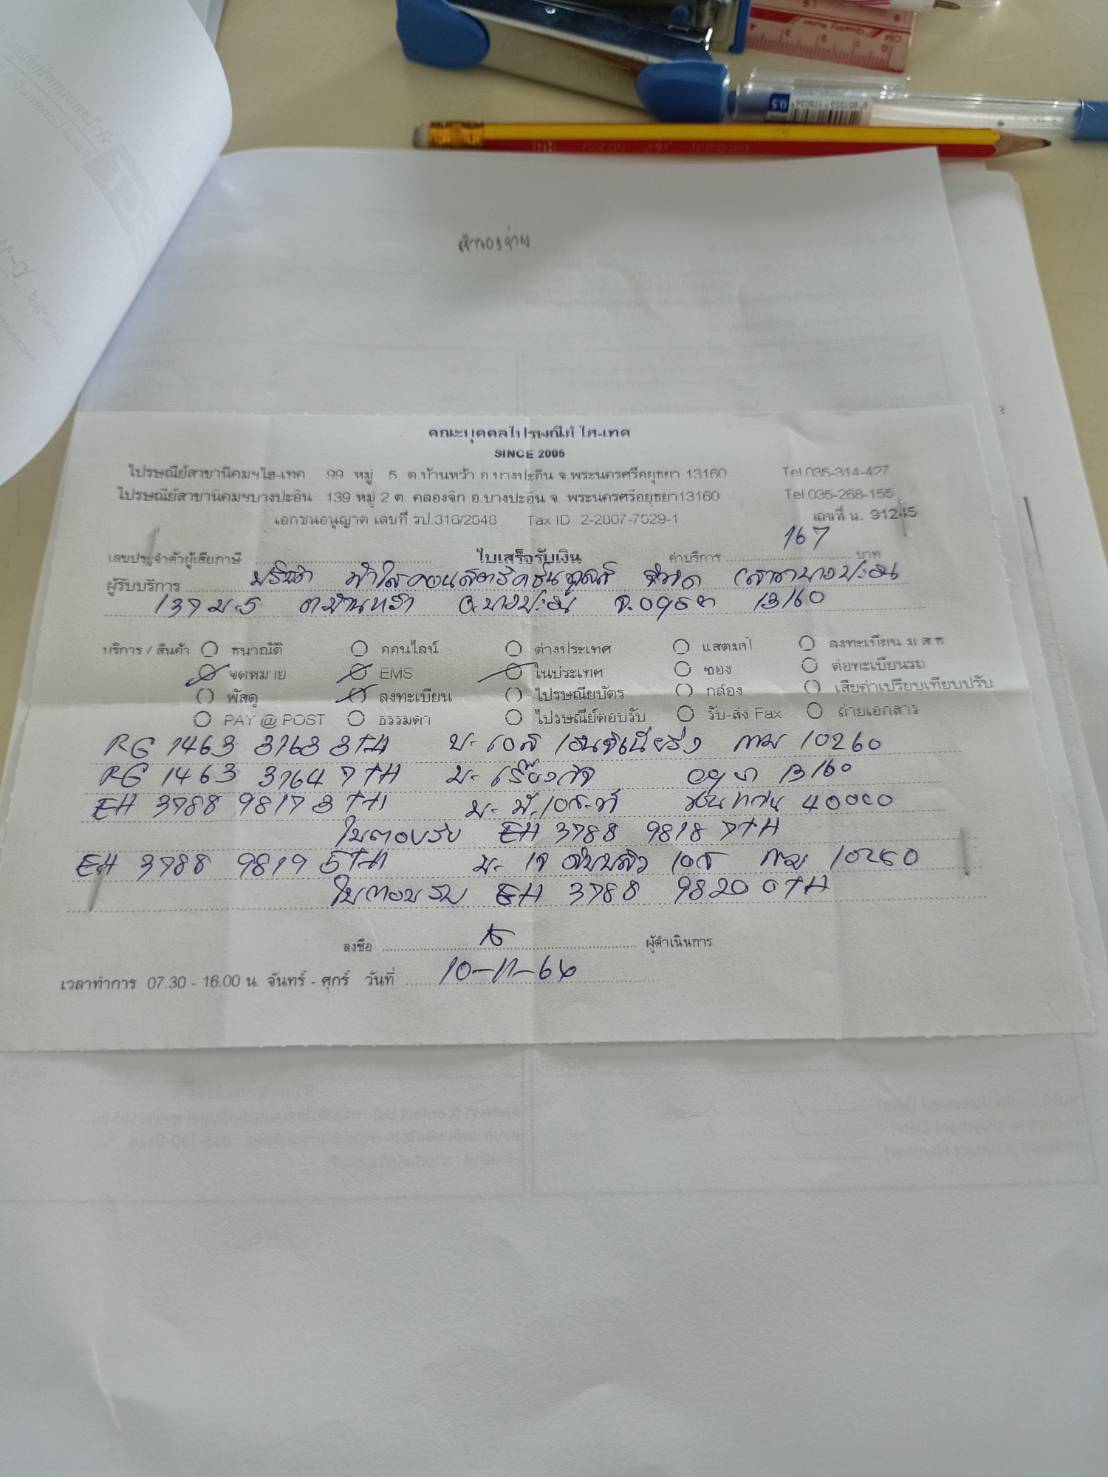 สำรองจ่าย
คณะบุคคลไปรษณีย์ ไฮ-เทค
SINCE 2005
ไปรษณีย์สาขานิคมฯไฮ-เทค 99 หมู่ 5 ต.บ้านหว้า อ.บางปะอิน จ.พระนครศรีอยุธยา 13160 Tel.035-314-427
ไปรษณีย์สาขานิคมฯบางปะอิน 139 หมู่ 2 ต. คลองจิก อ.บางปะอิน จ. พระนครศรีอยุธยา13160 Tel.035-268-155
เอกชนอนุญาต เลขที่ รป.316/2548 Tax ID 2-2807-7529-1 เลขที่ น. 31245
เลขประจำตัวผู้เสียภาษี ใบเสร็จรับเงิน ค่าบริการ 167 บาท
ผู้รับบริการ บริษัท คอนสตรัคชั่น ทูลส์ จำกัด (สาขาบางปะอิน
139 ม.5 ต.บ้านหว้า อ.บางปะอิน จ.อยุธยา 13160
บริการ / สินค้า ธนาณัติ ออนไลน์ ต่างประเทศ แสตมป์ ลงทะเบียน ม.ส.ท
จดหมาย EMS ในประเทศ ซอง ต่อทะเบียนรถ
พัสดุ ลงทะเบียน ไปรษณียบัตร กล่อง เสียค่าเปรียบเทียบปรับ
PAY @ POST ธรรมดา ไปรษณีย์ตอบรับ รับ-ส่ง Fax ถ่ายเอกสาร
RG 1463 3763 3TH บ. เอส เอนจิเนียริ่ง กทม 10260
RG 1463 3764 7TH บ. อยุธยา 13160
EH 3788 9817 3TH บ. ขอนแก่น 40000
ใบตอบรับ EH 3788 9818 7TH
EH 3788 9819 5TH บ. กทม 10260
ใบตอบรับ EH 3788 9820 0TH
ลงชื่อ ผู้ดำเนินการ
เวลาทำการ 07.30 - 16.00 น. จันทร์ - ศุกร์ วันที่ 10-11-66